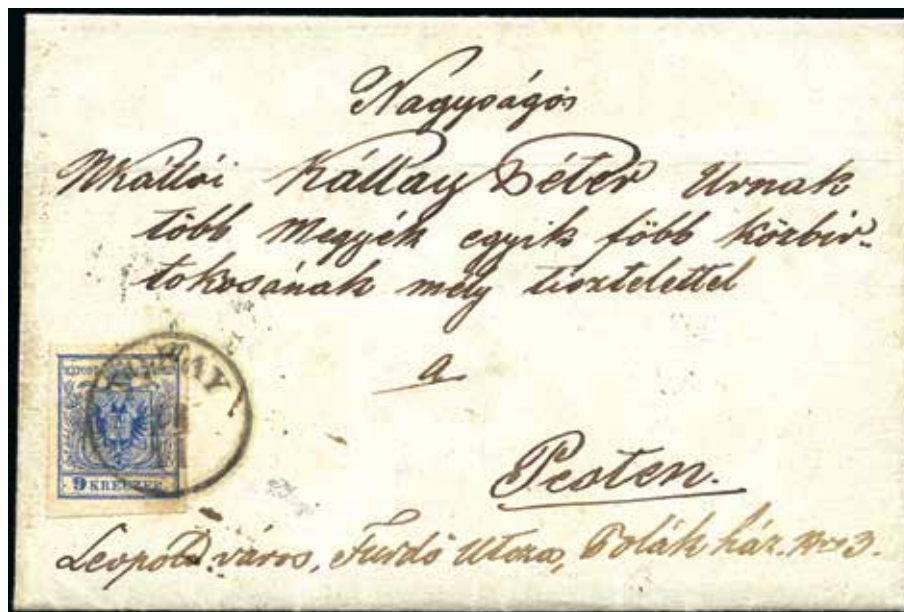 Nagyságos
Nkállói Kállay Péter Urnak
több Megyék egyik főbb közbir-
tokosának mély tisztelettel
a
Pesten.
Leopold város, Furdő Utcza, Polák ház. Nro 3.
9 KREUZER